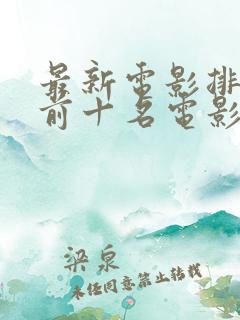 最新電影排
前十名電影
梁泉
未经同意禁止转载